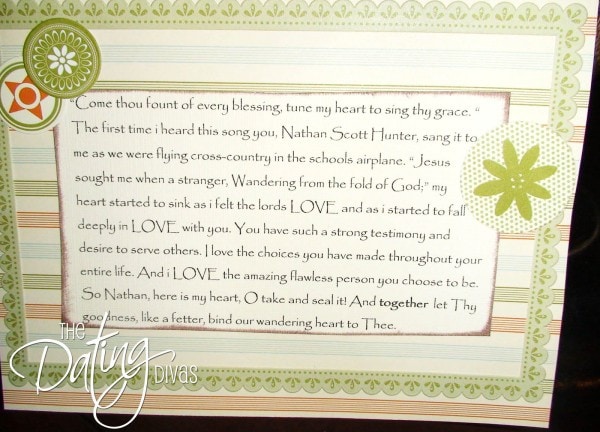 "Come thou fount of every blessing, tune my heart to sing thy grace. "
The first time i heard this song you, Nathan Scott Hunter, sang it to
me as we were flying cross-country in the schools airplane. "Jesus
sought me when a stranger, Wandering from the fold of God;" my
heart started to sink as i felt the lords LOVE and as i started to fall
deeply in LOVE with you. You have such a strong testimony and
desire to serve others. I love the choices you have made throughout your
entire life. And i LOVE the amazing flawless person you choose to be.
So Nathan, here is my heart, O take and seal it! And together let Thy
goodness, like a fetter, bind our wandering heart to Thee.
THE
Dating
DIVAS